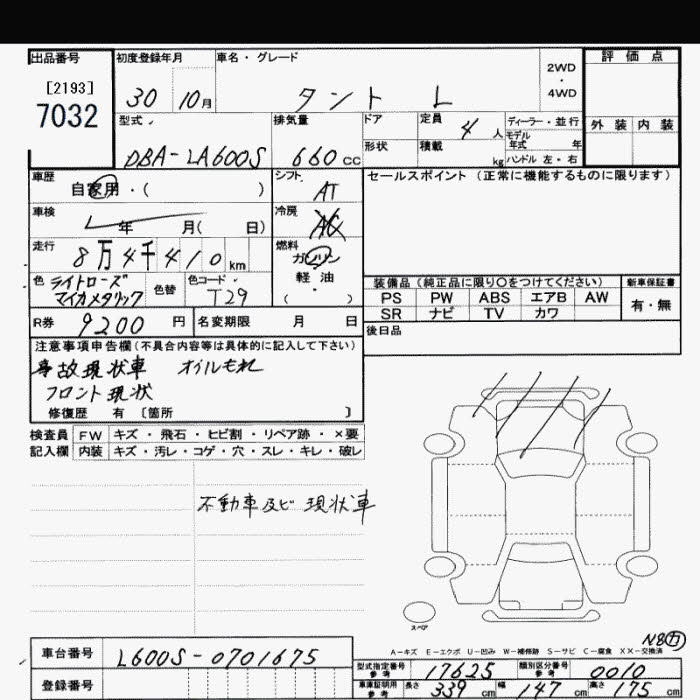 出品番号
[2193]
7032
初度登録年月
30 10月
車名・グレード
タント L
2WD
・
4WD
評価点
外装 内装
型式
DBA-LA600S
排気量
660cc
ドア
形状
定員 4人
積載 kg
ディーラー・並行
モデル年式 年
ハンドル 左・右
車歴
自家用・( )
シフト
AT
車検
年 月( 日)
冷房
AC
走行
8万4千410km
燃料
ガソリン
軽・油
( )
色 ライトローズマイカメタリック
色替
色コード
T29
R券 9200円
名変期限 月 日
セールスポイント (正常に機能するものに限ります)
装備品(純正品に限り○をつけてください)
新車保証書
PS PW ABS エアB AW
SR ナビ TV カワ
有・無
後日品
注意事項申告欄(不具合内容等は具体的に記入して下さい)
事故現状車 オイルもれ
フロント現状
修復歴 有 [箇所 ]
検査員 FW キズ・飛石・ヒビ割・リペア跡・×要
記入欄 内装 キズ・汚レ・コゲ・穴・スレ・キレ・破レ
不動車及ビ現状車
スペア
N8万
A-キズ E-エクボ U-凹み W-補修跡 S-サビ C-腐食 XX-交換済
車台番号 L600S-0701675
登録番号
型式指定番号 参考 17625
類別区分番号 参考 0010
車庫証明用 参考 長さ 339cm 幅 147cm 高さ 175cm